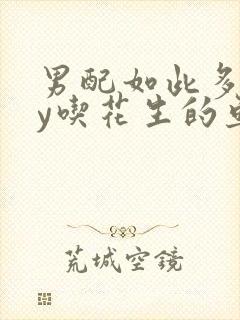 男配如此多
y喫花生的
荒城空鏡